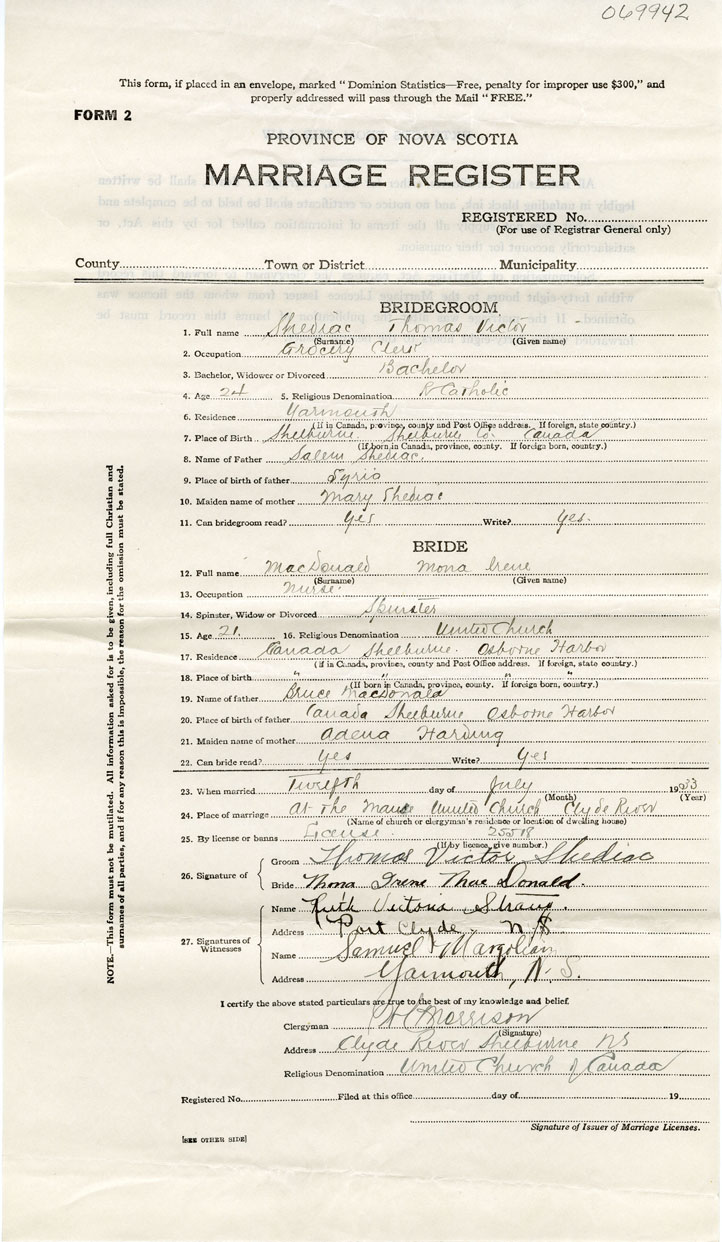 069942
This form, if placed in an envelope, marked "Dominion Statistics—Free, penalty for improper use $300," and
properly addressed will pass through the Mail "FREE."
FORM 2
PROVINCE OF NOVA SCOTIA
MARRIAGE REGISTER
REGISTERED No.
(For use of Registrar General only)
County Town or District Municipality
BRIDEGROOM
1. Full name Shediac Thomas Victor
(Surname) (Given name)
2. Occupation Grocery Clerk
3. Bachelor, Widower or Divorced Bachelor
4. Age 24 5. Religious Denomination R Catholic
6. Residence Yarmouth
(If in Canada, province, county and Post Office address. If foreign, state country.)
7. Place of Birth Shelburne Shelburne Co. Canada
(If born in Canada, province, county. If foreign born, country.)
8. Name of Father Salem Shediac.
9. Place of birth of father Syria
10. Maiden name of mother Mary Shediac
11. Can bridegroom read? Yes Write? Yes.
BRIDE
12. Full name MacDonald Mona Irene
(Surname) (Given name)
13. Occupation Nurse.
14. Spinster, Widow or Divorced Spinster
15. Age 21. 16. Religious Denomination United Church
17. Residence Canada Shelburne. Osborne Harbor
(if in Canada, province, county and Post Office address. If foreign, state country.)
18. Place of birth " " " "
(If born in Canada, province, county. If foreign born, country.)
19. Name of father Bruce MacDonald
20. Place of birth of father Canada Shelburne Osborne Harbor
21. Maiden name of mother Adena Harding
22. Can bride read? Yes Write? Yes
23. When married Twelfth day of July 1933
(Month) (Year)
24. Place of marriage At the Manse United Church Clyde River
(Name of church or clergyman's residence or location of dwelling house)
25. By license or banns License. 25518
(If by licence, give number.)
26. Signature of Groom Thomas Victor Shediac
Bride Mona Irene Mac Donald.
27. Signatures of Witnesses Name Ruth Victoria
Address Port Clyde, N.S.
Name Samuel Margolian
Address Yarmouth, N.S.
I certify the above stated particulars are true to the best of my knowledge and belief.
Clergyman Morrison
(Signature)
Address Clyde River Shelburne NS
Religious Denomination United Church of Canada
Registered No. Filed at this office day of 19
Signature of Issuer of Marriage Licenses.
[SEE OTHER SIDE]
NOTE.—This form must not be mutilated. All information asked for is to be given, including full Christian and
surnames of all parties, and if for any reason this is impossible, the reason for the omission must be stated.